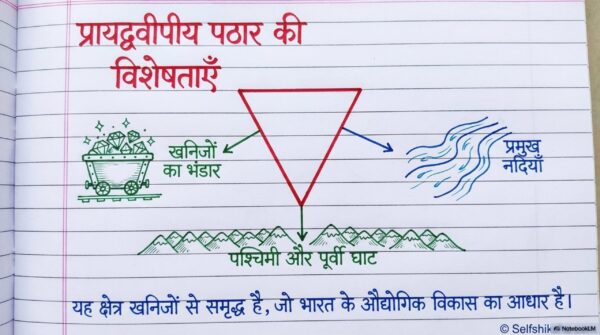 प्रायद्वीपीय पठार की
विशेषताएँ
खनिजों
का भंडार
प्रमुख
नदियाँ
पश्चिमी और पूर्वी घाट
यह क्षेत्र खनिजों से समृद्ध है, जो भारत के औद्योगिक विकास का आधार है।
© Selfshik
NotebookLM